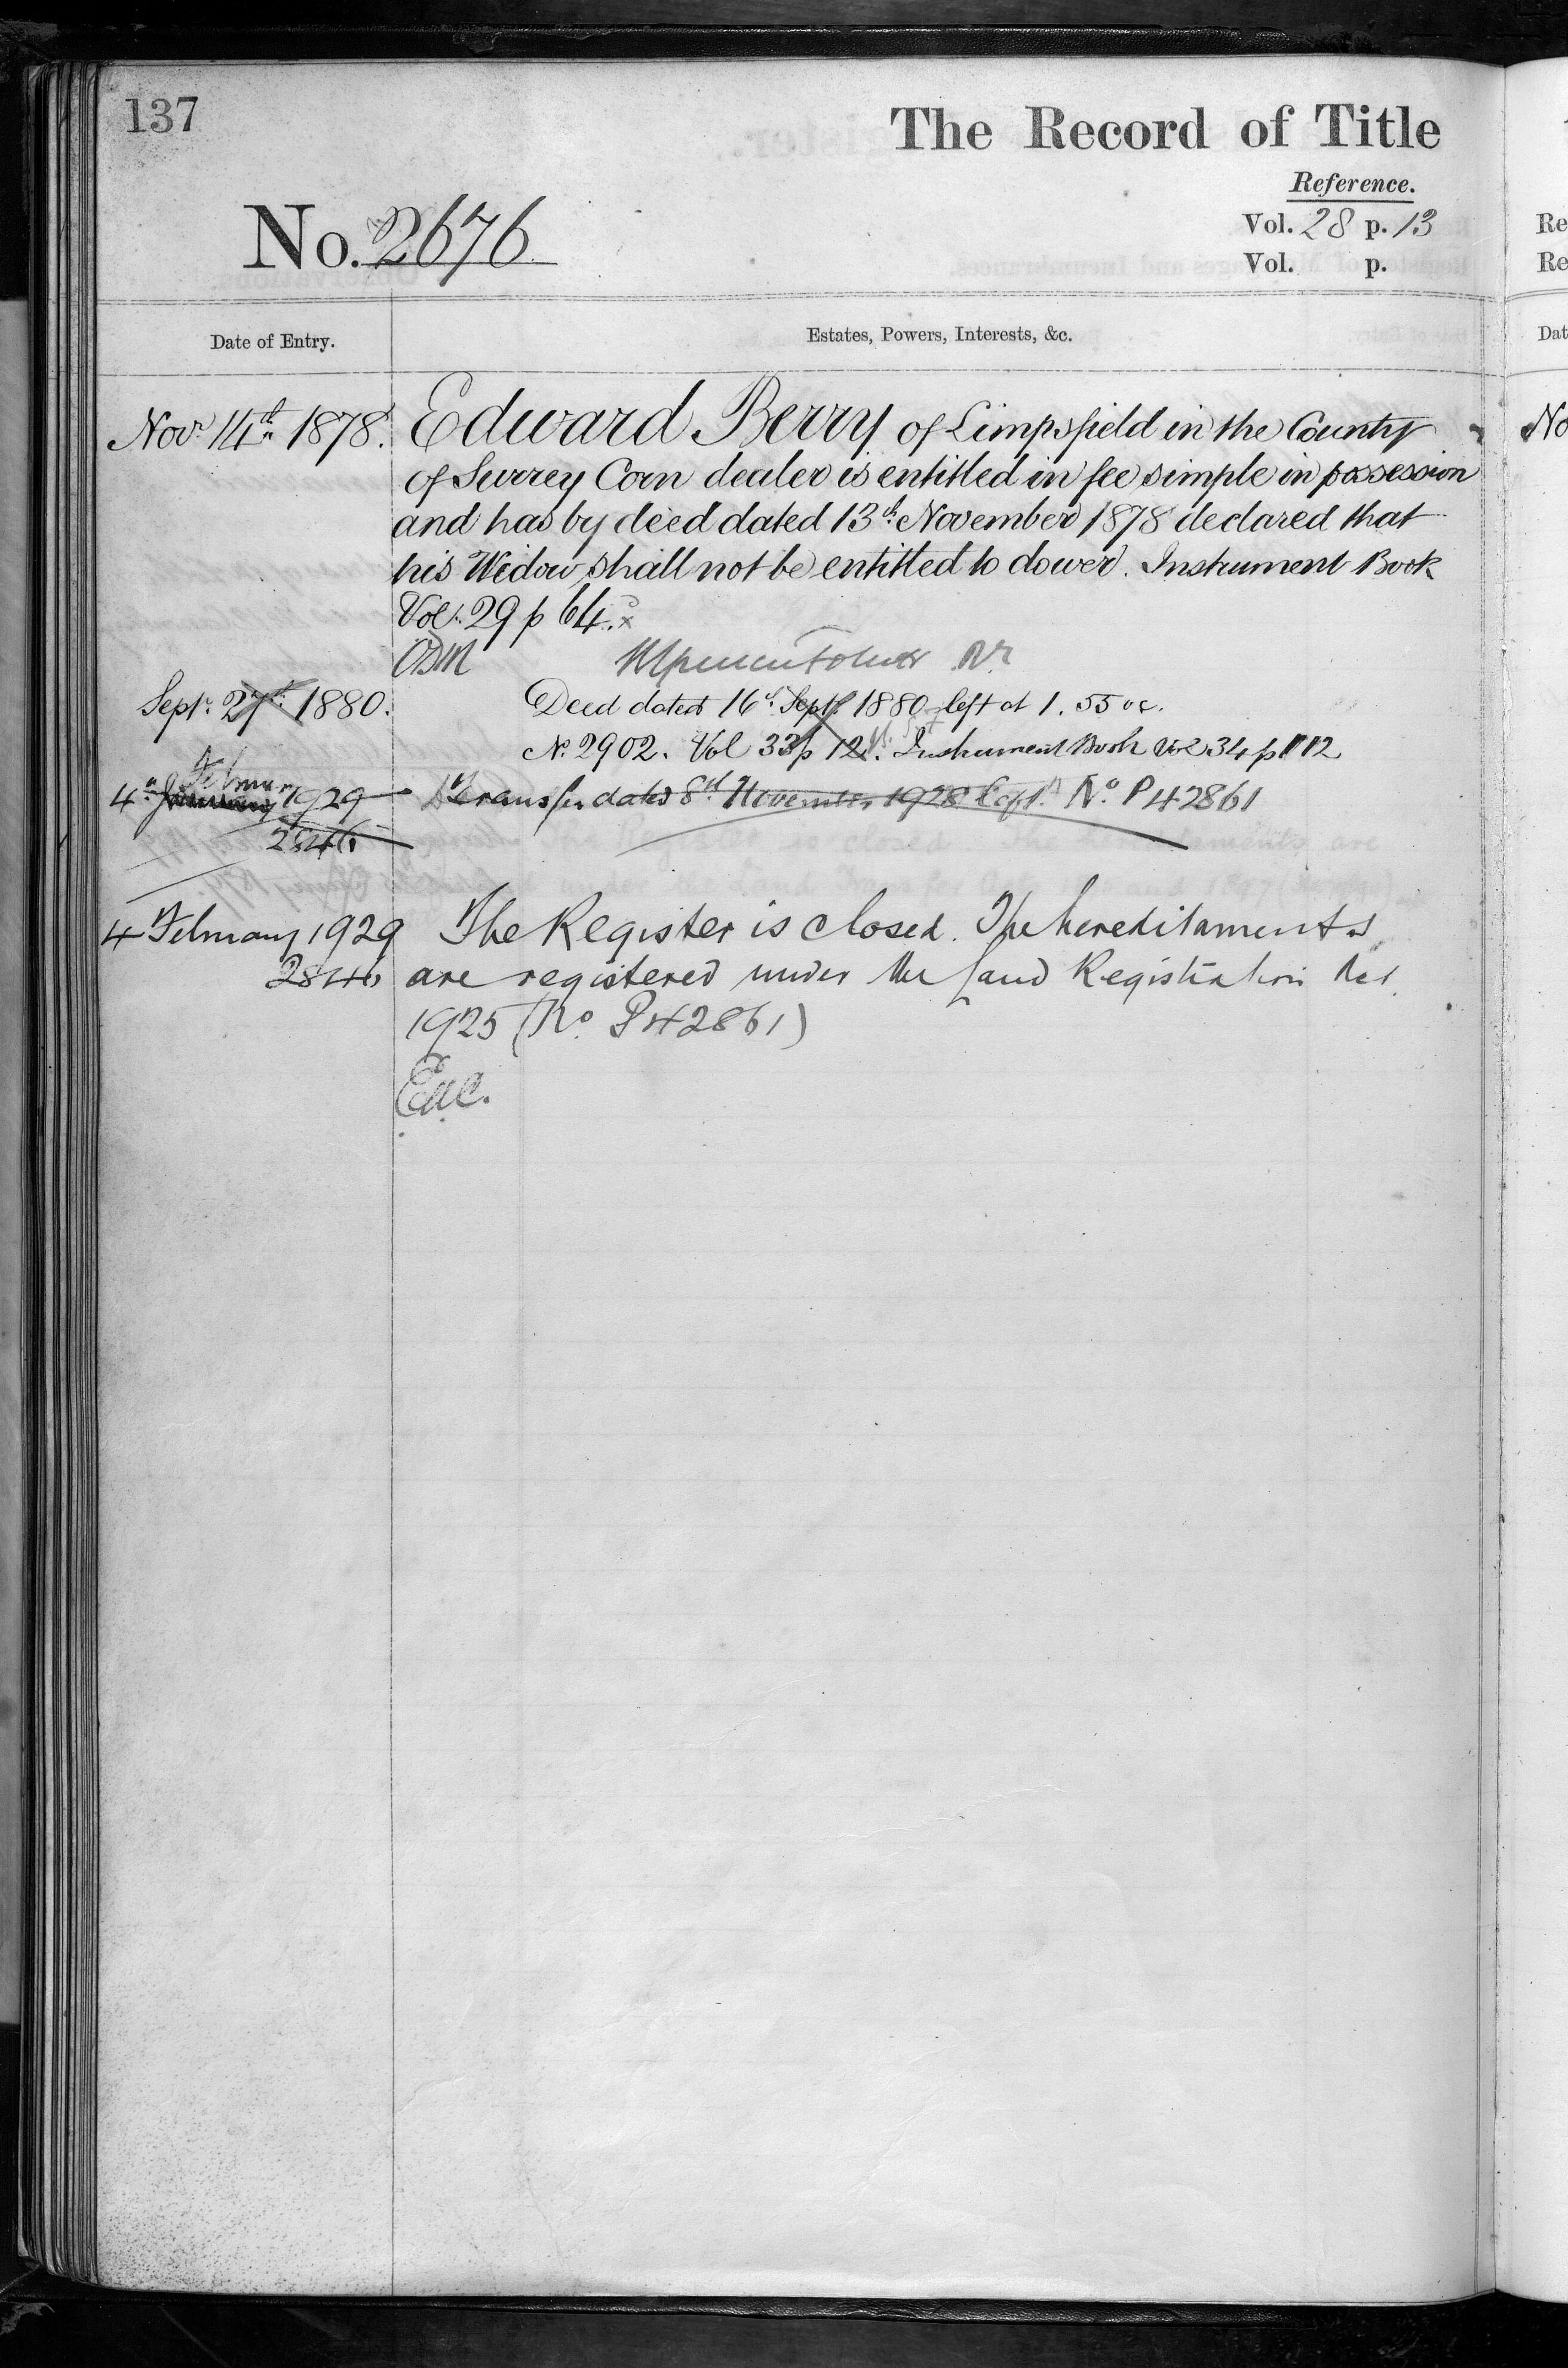 137
The Record of Title
Reference.
No. 2676
Vol. 28 p. 13
Vol. p.
Date of Entry.
Estates, Powers, Interests, &c.
Nov.r 14th 1878. Edward Berry of Limpsfield in the County
of Surrey Corn dealer is entitled in fee simple in possession
and has by deed dated 13th November 1878 declared that
his Widow shall not be entitled to dower. Instrument Book
Vol. 29 p 64.
Sept. 27th 1880. Deed dated 16th Sept. 1880 left at 1.55 oc.
No. 2902. Vol 33 p 121. Instrument Book Vol 34 p 112
February
4th January 1929 Transfer dated 8th November 1928 No. P42861
2846
4 February 1929 The Register is closed. The hereditaments
2846 are registered under the Land Registration Act
1925 (No. P42861)